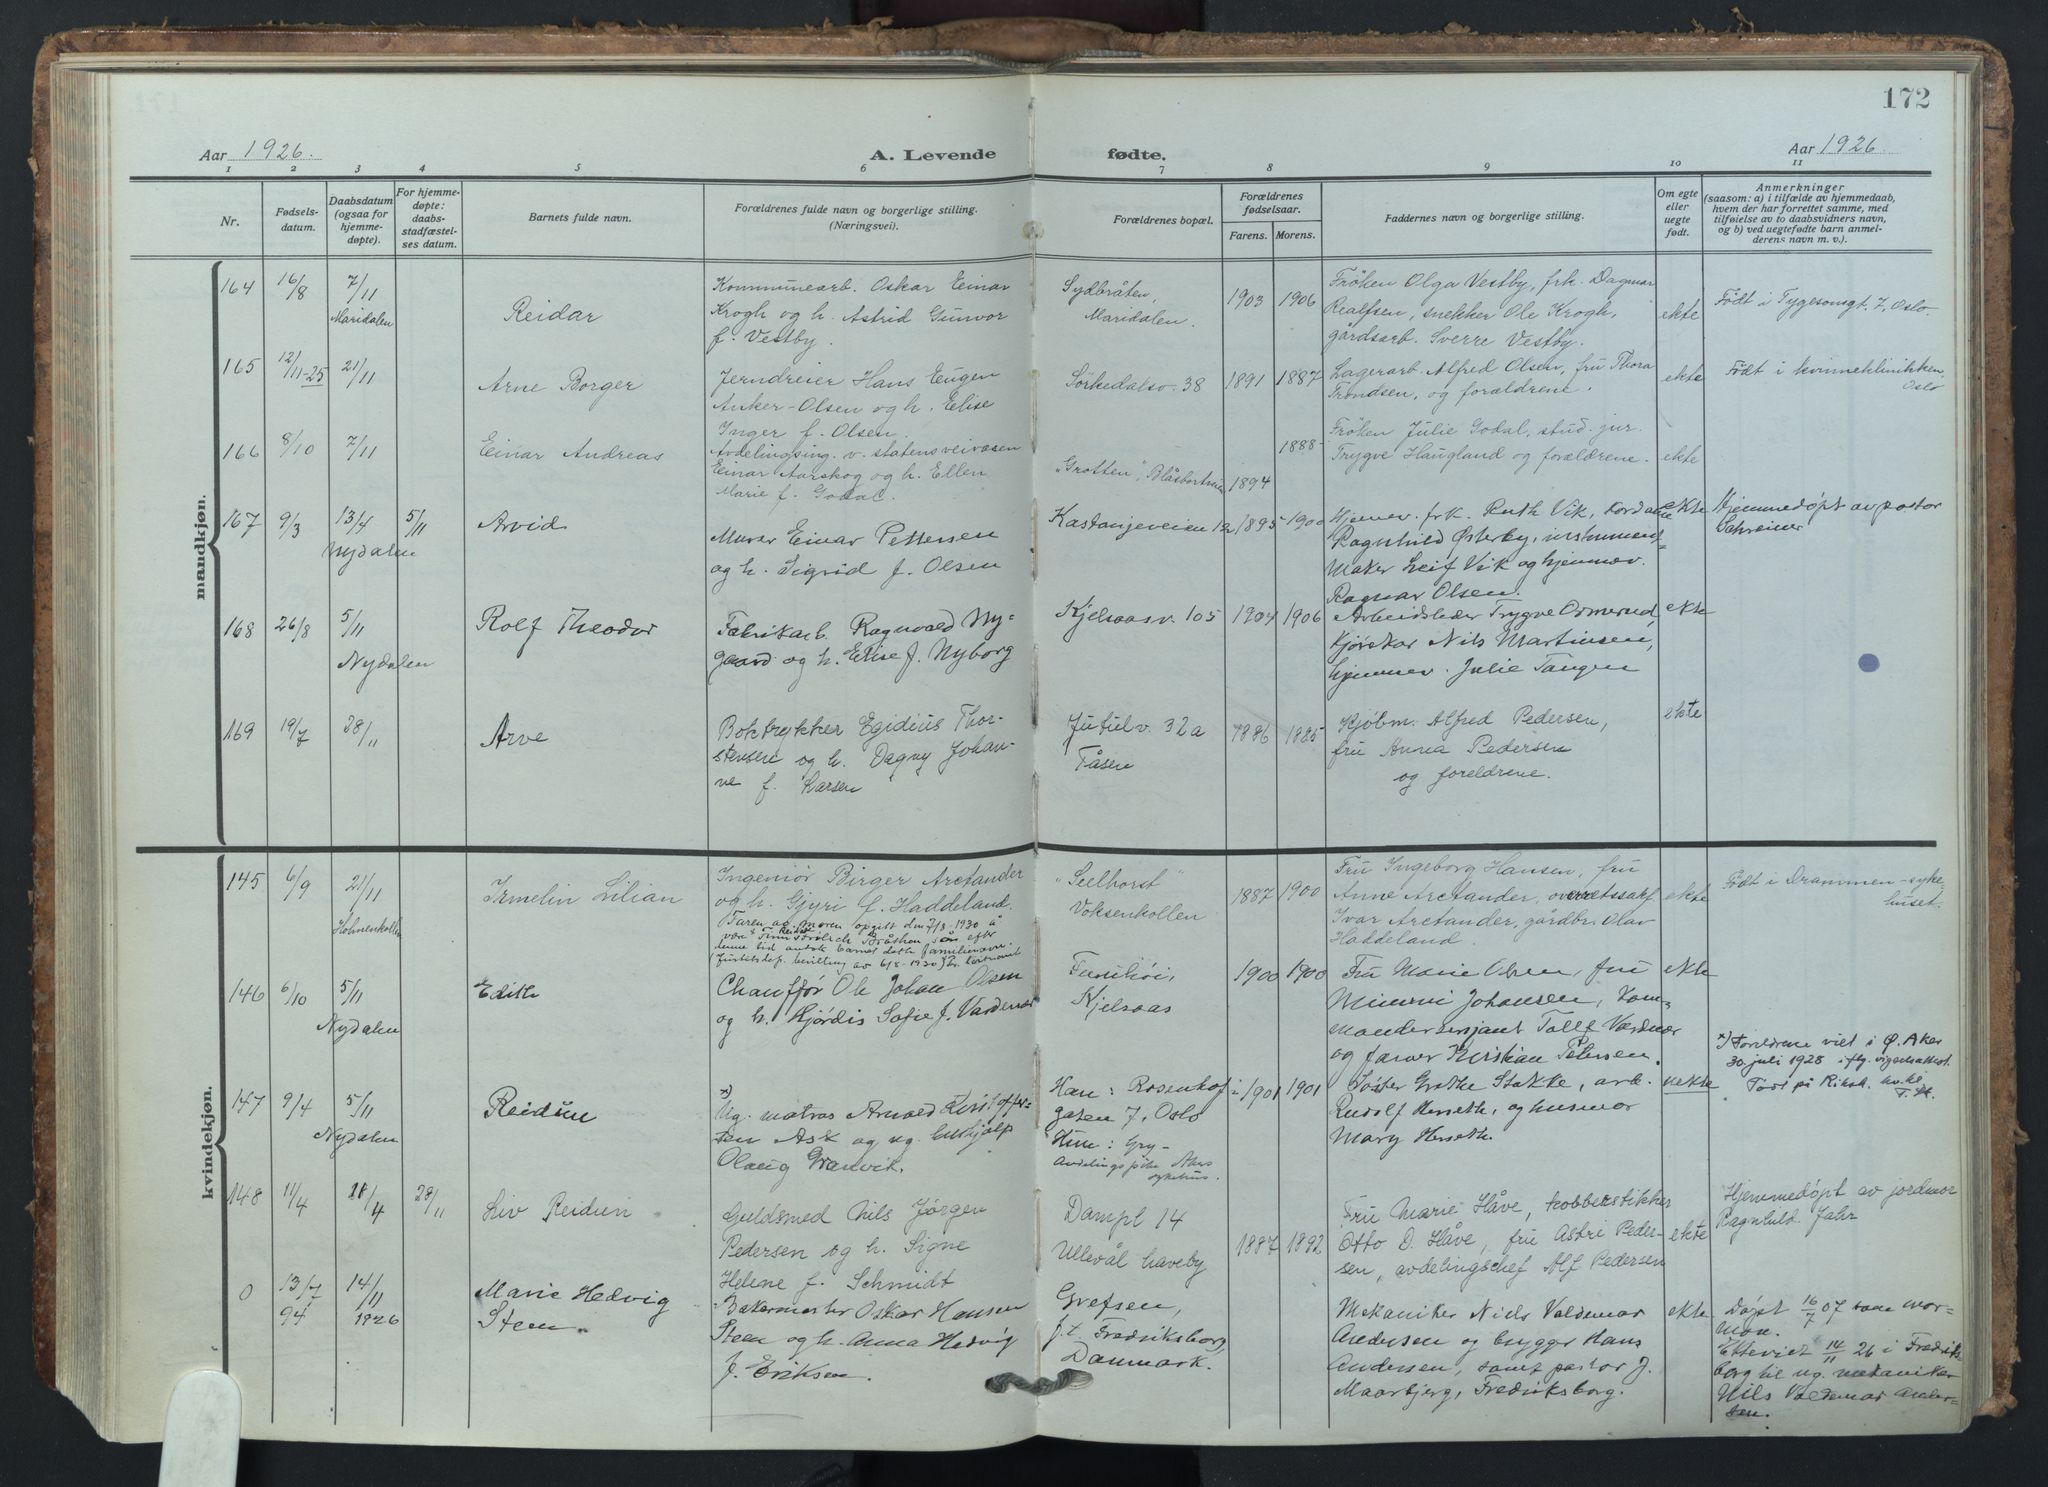 172
Aar 1926.
A. Levende fødte.
Aar 1926.
1 2 3 4 5 6 7 8 9 10 11
Nr.
Fødsels-
datum.
Daabsdatum
(ogsaa for
hjemme-
døpte).
For hjemme-
døpte:
daabs-
stadfæstel-
ses datum.
Barnets fulde navn.
Forældrenes fulde navn og borgerlige stilling.
(Næringsvei).
Forældrenes bopæl.
Forældrenes
fødselsaar.
Farens. Morens.
Faddernes navn og borgerlige stilling.
Om egte
eller
uegte
født.
Anmerkninger
(saasom: a) i tilfælde av hjemmedaab,
hvem der har forrettet samme, med
tilføielse av to daabsvidners navn,
og b) ved uegtefødte barn anmel-
derens navn m. v.).
mandkjøn.
164 16/8 7/11 Maridalen
Reidar
Kommunearb. Oskar Einar
Krogh og h. Astrid Gunvor
f. Vestby.
Sydbråten,
Maridalen.
1903 1906
Fröken Olga Vestby, frk. Dagmar
Realfsen, snekker Ole Krogh,
gårdsarb. Sverre Vestby.
ekte
Födt i Tygesonsgt. 7, Oslo.
165 12/11-25 21/11
Arne Borger
Jerndreier Hans Eugen
Anker-Olsen og h. Elise
Inger f. Olsen.
Sörkedalsv. 38
1891 1887
Lagerarb. Alfred Olsen, fru Thora
Trondsen, og forældrene.
ekte
Födt i kvinneklinikken,
Oslo
166 8/10 7/11
Einar Andreas
Avdelingsing. v. statens veivæsen
Einar Aarskog og h. Ellen
Marie f. Godal.
"Grotten", Blåsbortveien
1894 1888
Fröken Julie Godal, stud. jur.
Trygve Haugland og forældrene.
ekte
167 9/3 13/4 5/11
Nydalen
Arvid
Murer Einar Pettersen
og h. Sigrid f. Olsen
Kastanjeveien 12
1895 1900
Hjemmev. frk. Ruth Vik,
Ragnhild Østerby, instrument-
maker Leif Vik og hjemmev.
Ragnar Olsen.
ekte
Hjemmedøpt av pastor
Schreiner
168 26/8 5/11
Nydalen
Rolf Theodor
Fabrikarb. Ragnvald Ny-
gaard og h. Elise f. Nyborg
Kjelsaasv. 105
1904 1906
Arbeidsleder Trygve Ormerud,
kjørekar Nils Martinsen,
hjemmev. Julie Tangen
ekte
169 19/7 28/11
Arve
Boktrykker Egidius Thor-
stensen og h. Dagny Johan-
ne f. Larsen
Jutulv. 32a
Tåsen
1886 1885
Kjøbm. Alfred Pedersen,
fru Anna Pedersen
og foreldrene.
ekte
kvindekjøn.
145 6/9 21/11
Holmenkollen
Irmelin Lilian
Ingeniør Birger Arctander
og h. Gjyri f. Haddeland.
(Faren av moren opgitt den 7/8 1930 å
være Finn Frölich Bråthen som efter
denne tid antok barnet dette familienavn.
(Justitsdep. bevilling av 6/8-1930)
"Seelhorst"
Voksenkollen
1887 1900
Fru Ingeborg Hansen, fru
Anne Arctander, overretssakf.
Ivar Arctander, gårdbr. Olav
Haddeland.
ekte
Födt i Drammen-syke-
huset.
146 6/10 5/11
Nydalen
Edith
Chauffør Ole Johan Olsen
og h. Hjördis Sofie f. Vardenær
Kjelsaas
1900 1900
Fru Marie Olsen, fru
Minni Johansen, kom-
mandersersjant Tolf Vardenær
og farver Kristian Petersen.
ekte
147 9/4 5/11
Nydalen
Reidun
x)
Ug. matros Arnold Kristoffer-
sen Ask og ug. hushjelp
Olaug Granvik.
Han: Rosenhof-
gaten 7, Oslo
Hun: Gry-
Avdelingspike Akers
sykehus.
1901 1901
Søster Grethe Stokke, arb.
Rudolf Herseth, og husmor
Mary Herseth.
uekte
x) Foreldrene viet i Ø. Aker
30 juli 1928 iflg. vigselsattest.
148 11/4 18/4 28/11
Liv Reidun
Guldsmed Nils Jørgen
Pedersen og h. Signe
Helene f. Schmidt
Dampl 14
Ullevål haveby
1887 1892
Fru Marie Håve, kobberstikker
Otto D. Håve, fru Astri Peder-
sen, avdelingschef Alf Pedersen
ekte
Hjemmedöpt av jordmor
Ragnhild Jahr
0 13/7 94 14/11 1926
Marie Hedvig
Steen.
Bakermester Oskar Hansen
Steen og h. Anna Hedvig
f. Eriksen.
Grefsen,
f.t. Fredriksborg,
Danmark.
Mekaniker Niels Valdemar
Andersen og brygger Hans
Andersen, samt pastor J.
Maarbjerg, Fredriksborg.
ekte
Døpt 16/7 07 som mor-
mon.
Etteviet 14/11 26 i Fredriks-
borg til ug. mekaniker
Nils Valdemar Ander-
sen.